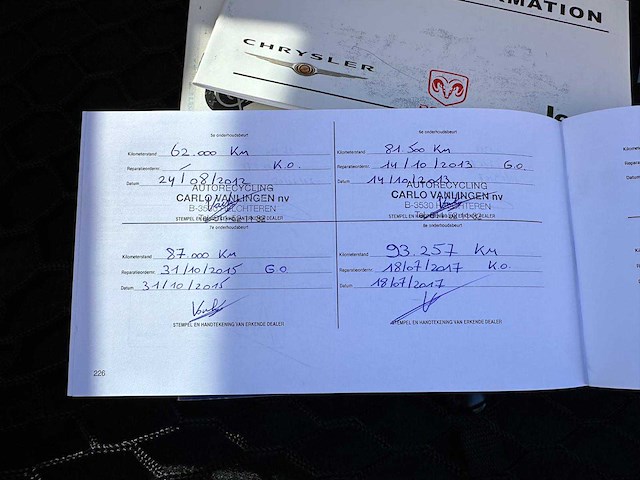 RMATION
CHRYSLER
Je
5e onderhoudsbeurt
Kilometerstand 62.000 Km
Reparatieordernr. K.O.
Datum 24/08/2012
AUTORECYCLING
CARLO VANLINGEN nv
STEMPEL EN HANDTEKENING VAN ERKENDE DEALER
6e onderhoudsbeurt
Kilometerstand 81.500 Km
Reparatieordernr. 14/10/2013 G.O.
Datum 14/10/2013
AUTORECYCLING
CARLO VANLINGEN nv
B-3530 HECHTEREN
STEMPEL EN HANDTEKENING VAN ERKENDE DEALER
7e onderhoudsbeurt
Kilometerstand 87.000 Km
Reparatieordernr. 31/10/2015 G.O.
Datum 31/10/2015
STEMPEL EN HANDTEKENING VAN ERKENDE DEALER
8e onderhoudsbeurt
Kilometerstand 93.257 Km
Reparatieordernr. 18/07/2017 K.O.
Datum 18/07/2017
STEMPEL EN HANDTEKENING VAN ERKENDE DEALER
226